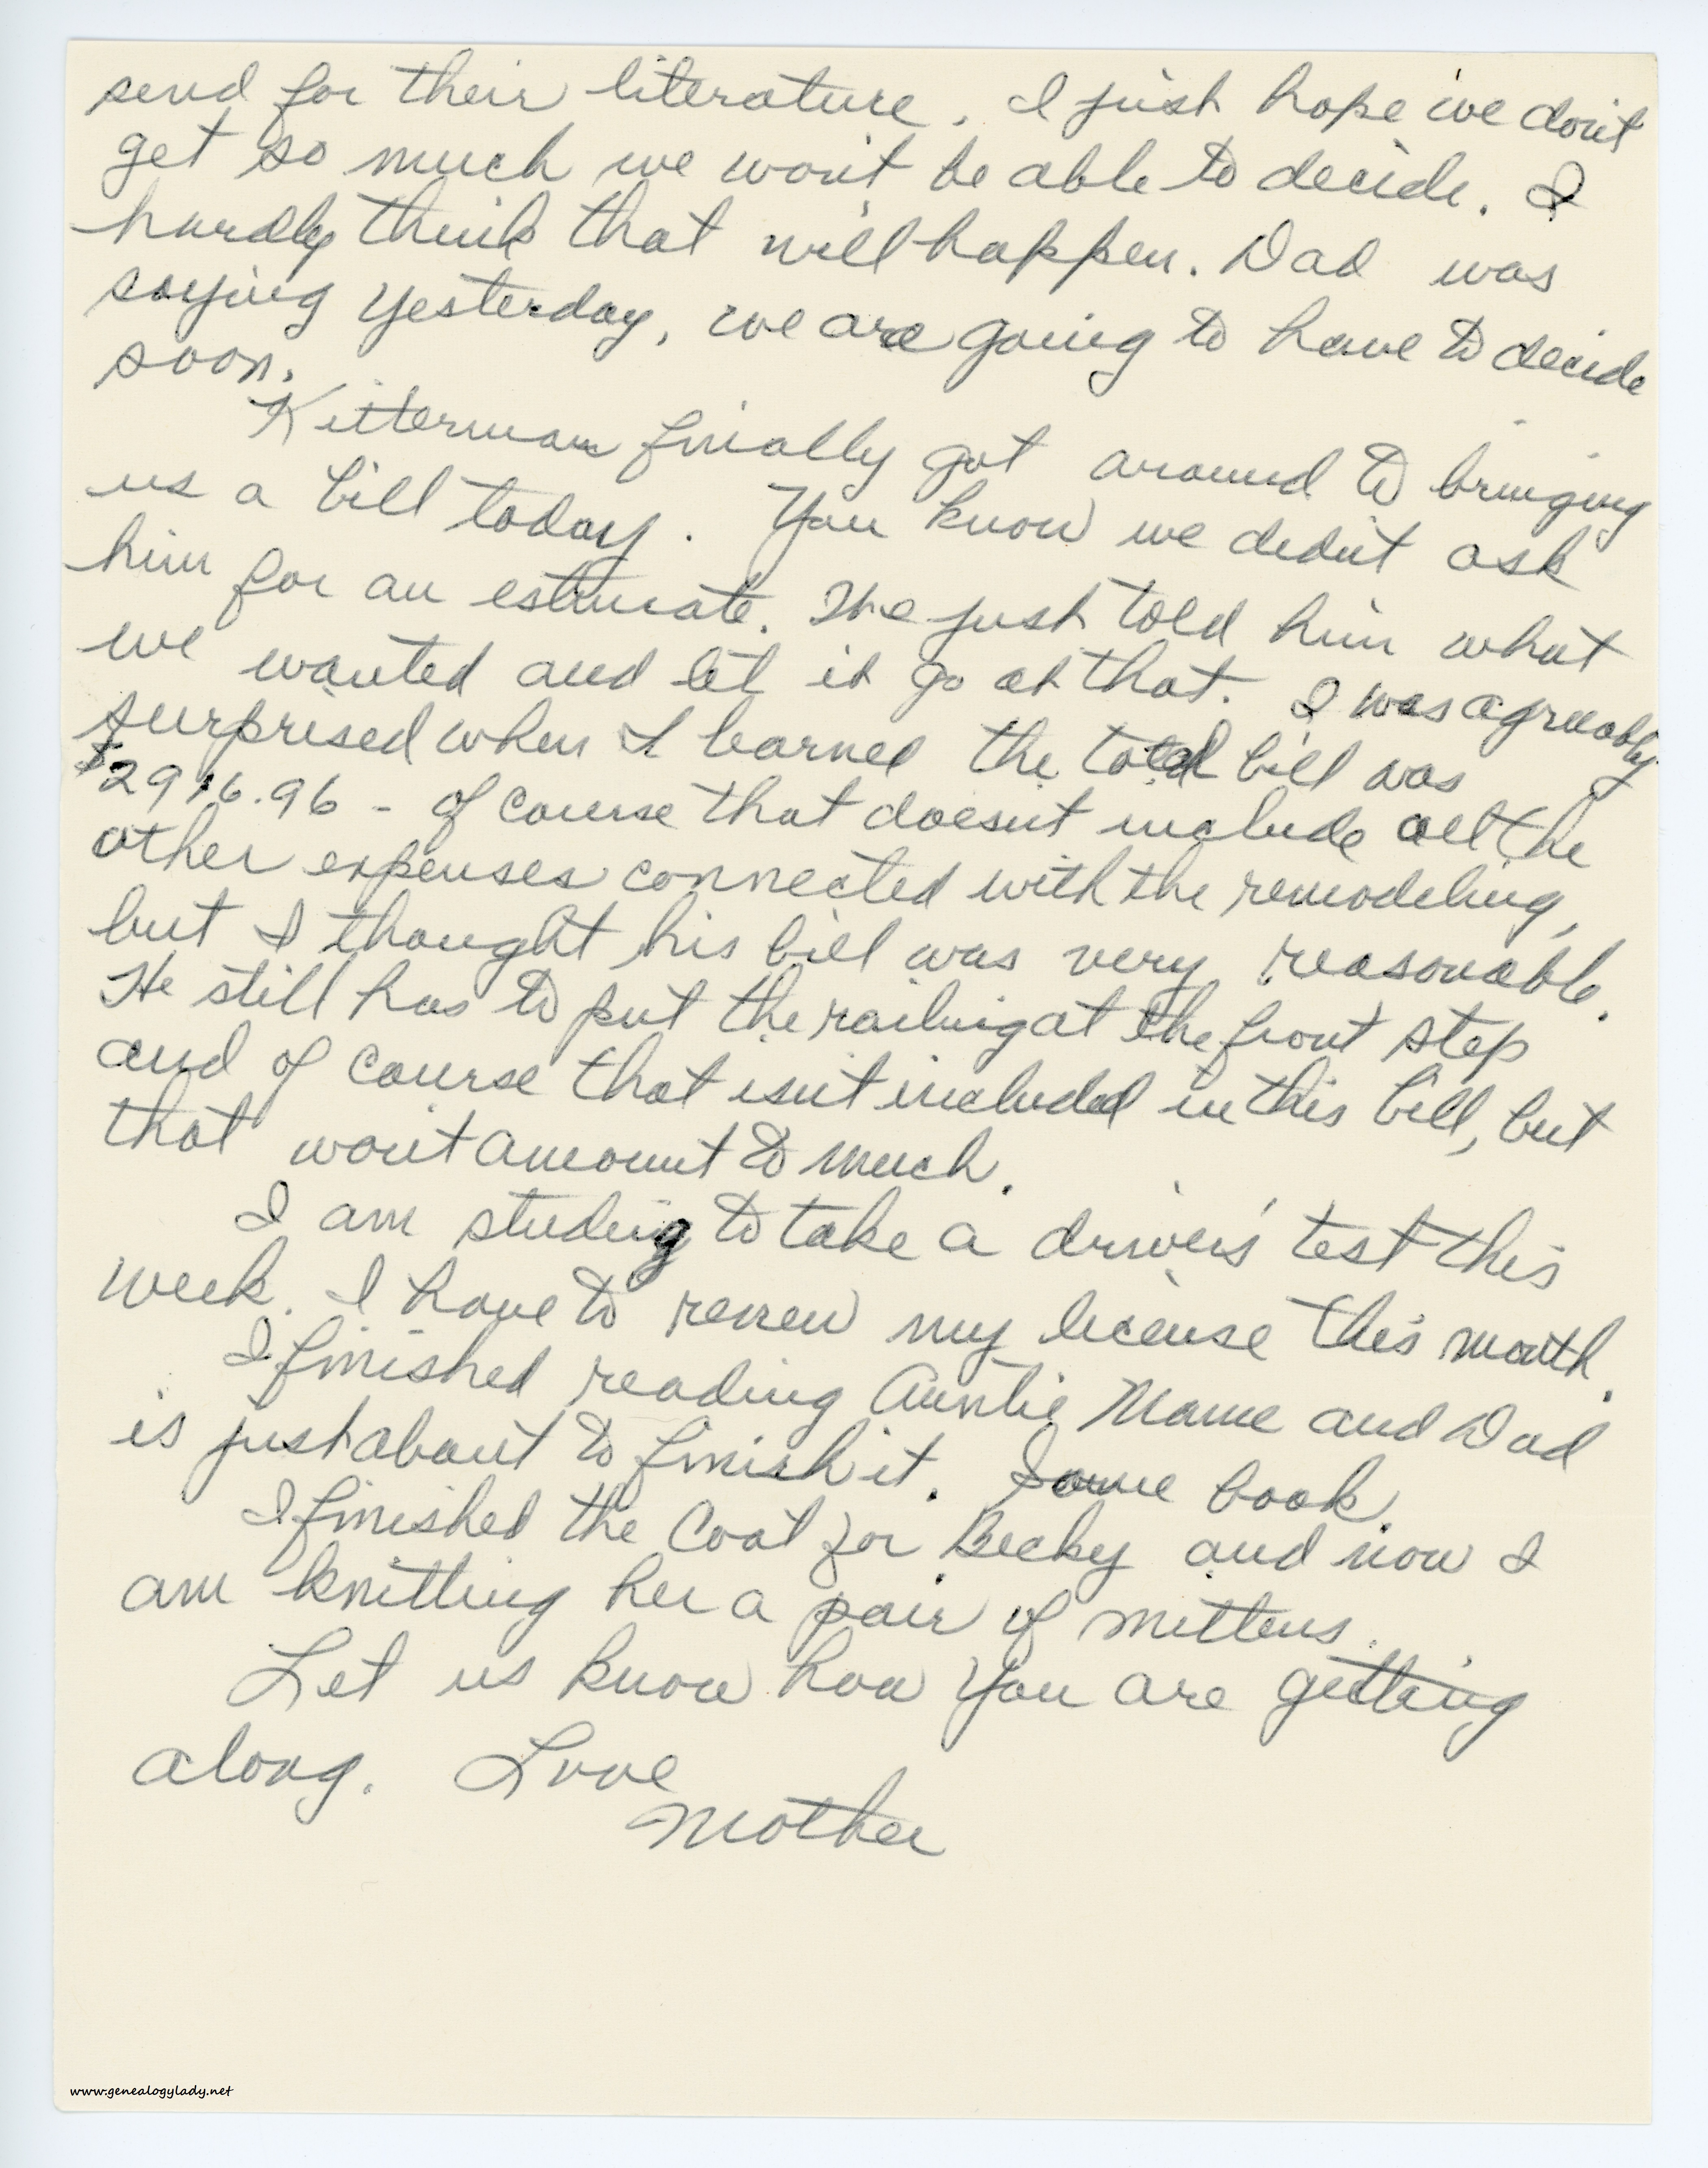 send for their literature. I just hope we don't
get so much we won't be able to decide. I
hardly think that will happen. Dad was
saying yesterday, we are going to have to decide
soon.
Kitterman finially got around to bringing
us a bill today. You know we didn't ask
him for an estimate. We just told him what
we wanted and let it go at that. I was agreeably
surprised when I learned the total bill was
$2916.96 - of course that doesn't include all the
other expenses connected with the remodeling,
but I thought his bill was very reasonable.
He still has to put the railing at the front step
and of course that isn't included in this bill, but
that won't amount to much.
I am studing to take a drivers' test this
week. I have to renew my license this month.
I finished reading Auntie Mame and Dad
is just about to finish it. Some book.
I finished the coat for Becky and now I
am knitting her a pair of mittens.
Let us know how you are getting
along. Love
Mother
www.genealogylady.net